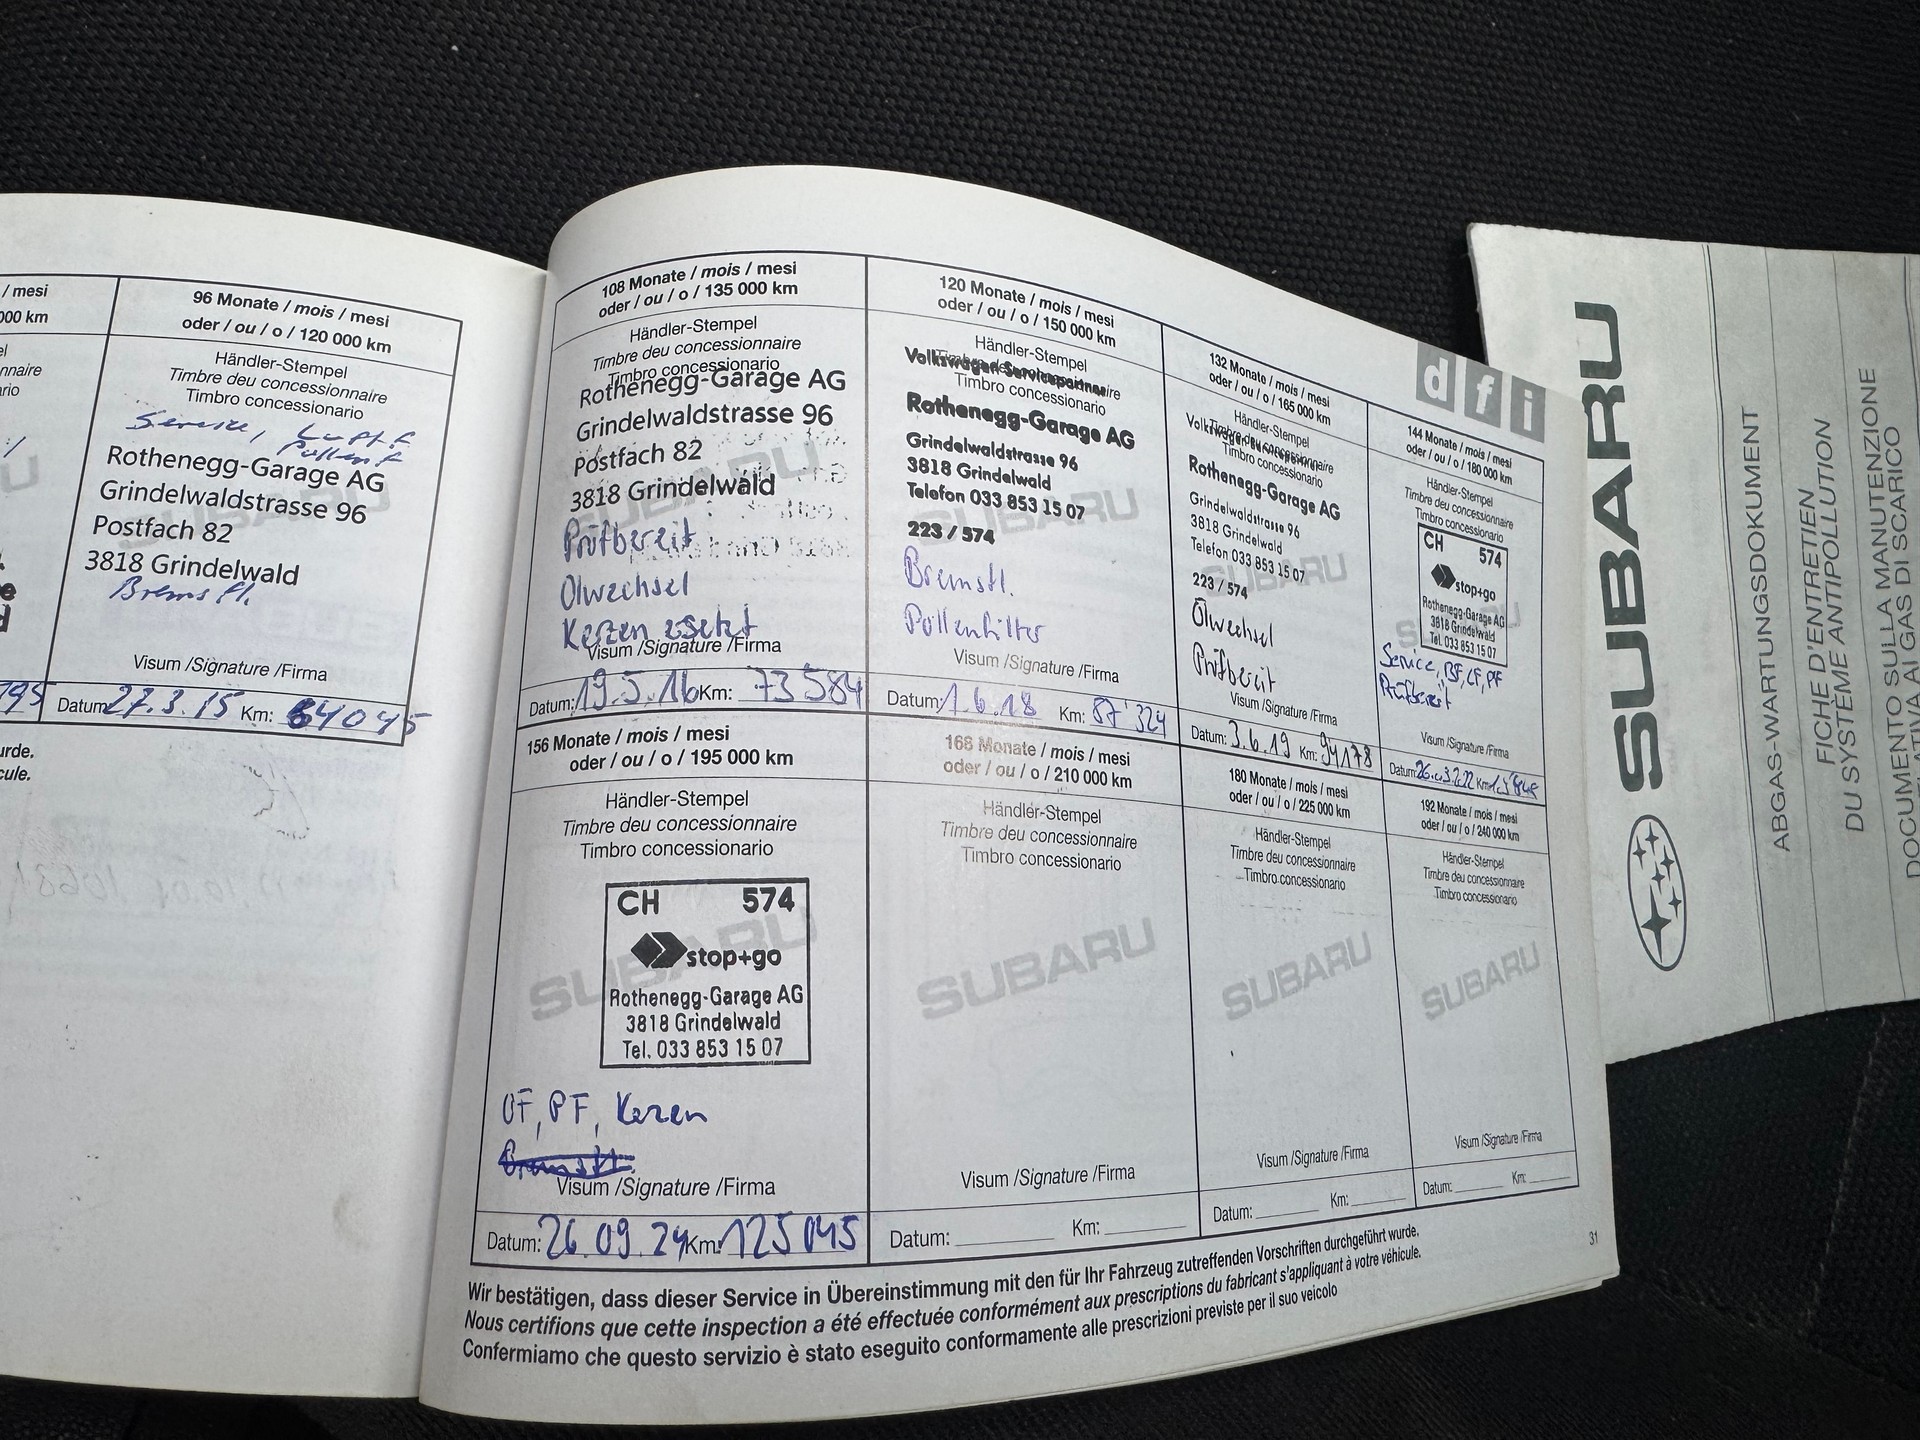 / mesi
000 km
96 Monate / mois / mesi
oder / ou / o / 120 000 km
Händler-Stempel
Timbre deu concessionnaire
Timbro concessionario
Service, Luft f
Pollen f
Rothenegg-Garage AG
Grindelwaldstrasse 96
Postfach 82
3818 Grindelwald
Bremsfl.
Visum /Signature /Firma
795
Datum: 27.3.15 Km: 64045
urde.
cule.
108 Monate / mois / mesi
oder / ou / o / 135 000 km
Händler-Stempel
Timbre deu concessionnaire
Timbro concessionario
Rothenegg-Garage AG
Grindelwaldstrasse 96
Postfach 82
3818 Grindelwald
SUBARU
Prüfbereit
Ölwechsel
Kerzen esetzt
Visum /Signature /Firma
Datum: 19.5.16 Km: 73584
120 Monate / mois / mesi
oder / ou / o / 150 000 km
Händler-Stempel
Timbre deu concessionnaire
Timbro concessionario
Volkswagen Servicepartner
Rothenegg-Garage AG
Grindelwaldstrasse 96
3818 Grindelwald
Telefon 033 853 15 07
SUBARU
223 / 574
Bremsfl.
Pollenfilter
Visum /Signature /Firma
Datum: 1.6.18 Km: 87'324
132 Monate / mois / mesi
oder / ou / o / 165 000 km
Händler-Stempel
Timbre deu concessionnaire
Timbro concessionario
Rothenegg-Garage AG
Grindelwaldstrasse 96
3818 Grindelwald
Telefon 033 853 15 07
SUBARU
223 / 574
Ölwechsel
Prüfbereit
Visum /Signature /Firma
Datum: 3.6.19 Km: 94178
d f i
144 Monate / mois / mesi
oder / ou / o / 180 000 km
Händler-Stempel
Timbre deu concessionnaire
Timbro concessionario
CH 574
stop+go
Rothenegg-Garage AG
3818 Grindelwald
Tel. 033 853 15 07
Service, BF, LF, PF
Prüfbereit
Visum /Signature /Firma
Datum: Km:
156 Monate / mois / mesi
oder / ou / o / 195 000 km
Händler-Stempel
Timbre deu concessionnaire
Timbro concessionario
CH 574
stop+go
SUBARU
Rothenegg-Garage AG
3818 Grindelwald
Tel. 033 853 15 07
PF, Kerzen
Visum /Signature /Firma
Datum: 26.09.24 Km: 125045
168 Monate / mois / mesi
oder / ou / o / 210 000 km
Händler-Stempel
Timbre deu concessionnaire
Timbro concessionario
SUBARU
Visum /Signature /Firma
Datum: Km:
180 Monate / mois / mesi
oder / ou / o / 225 000 km
Händler-Stempel
Timbre deu concessionnaire
Timbro concessionario
SUBARU
Visum /Signature /Firma
Datum: Km:
192 Monate / mois / mesi
oder / ou / o / 240 000 km
Händler-Stempel
Timbre deu concessionnaire
Timbro concessionario
SUBARU
Visum /Signature /Firma
Datum: Km:
Wir bestätigen, dass dieser Service in Übereinstimmung mit den für Ihr Fahrzeug zutreffenden Vorschriften durchgeführt wurde.
Nous certifions que cette inspection a été effectuée conformément aux prescriptions du fabricant s'appliquant à votre véhicule.
Confermiamo che questo servizio è stato eseguito conformamente alle prescrizioni previste per il suo veicolo
31
SUBARU
ABGAS-WARTUNGSDOKUMENT
FICHE D'ENTRETIEN
DU SYSTÈME ANTIPOLLUTION
DOCUMENTO SULLA MANUTENZIONE
ATIVA AI GAS DI SCARICO